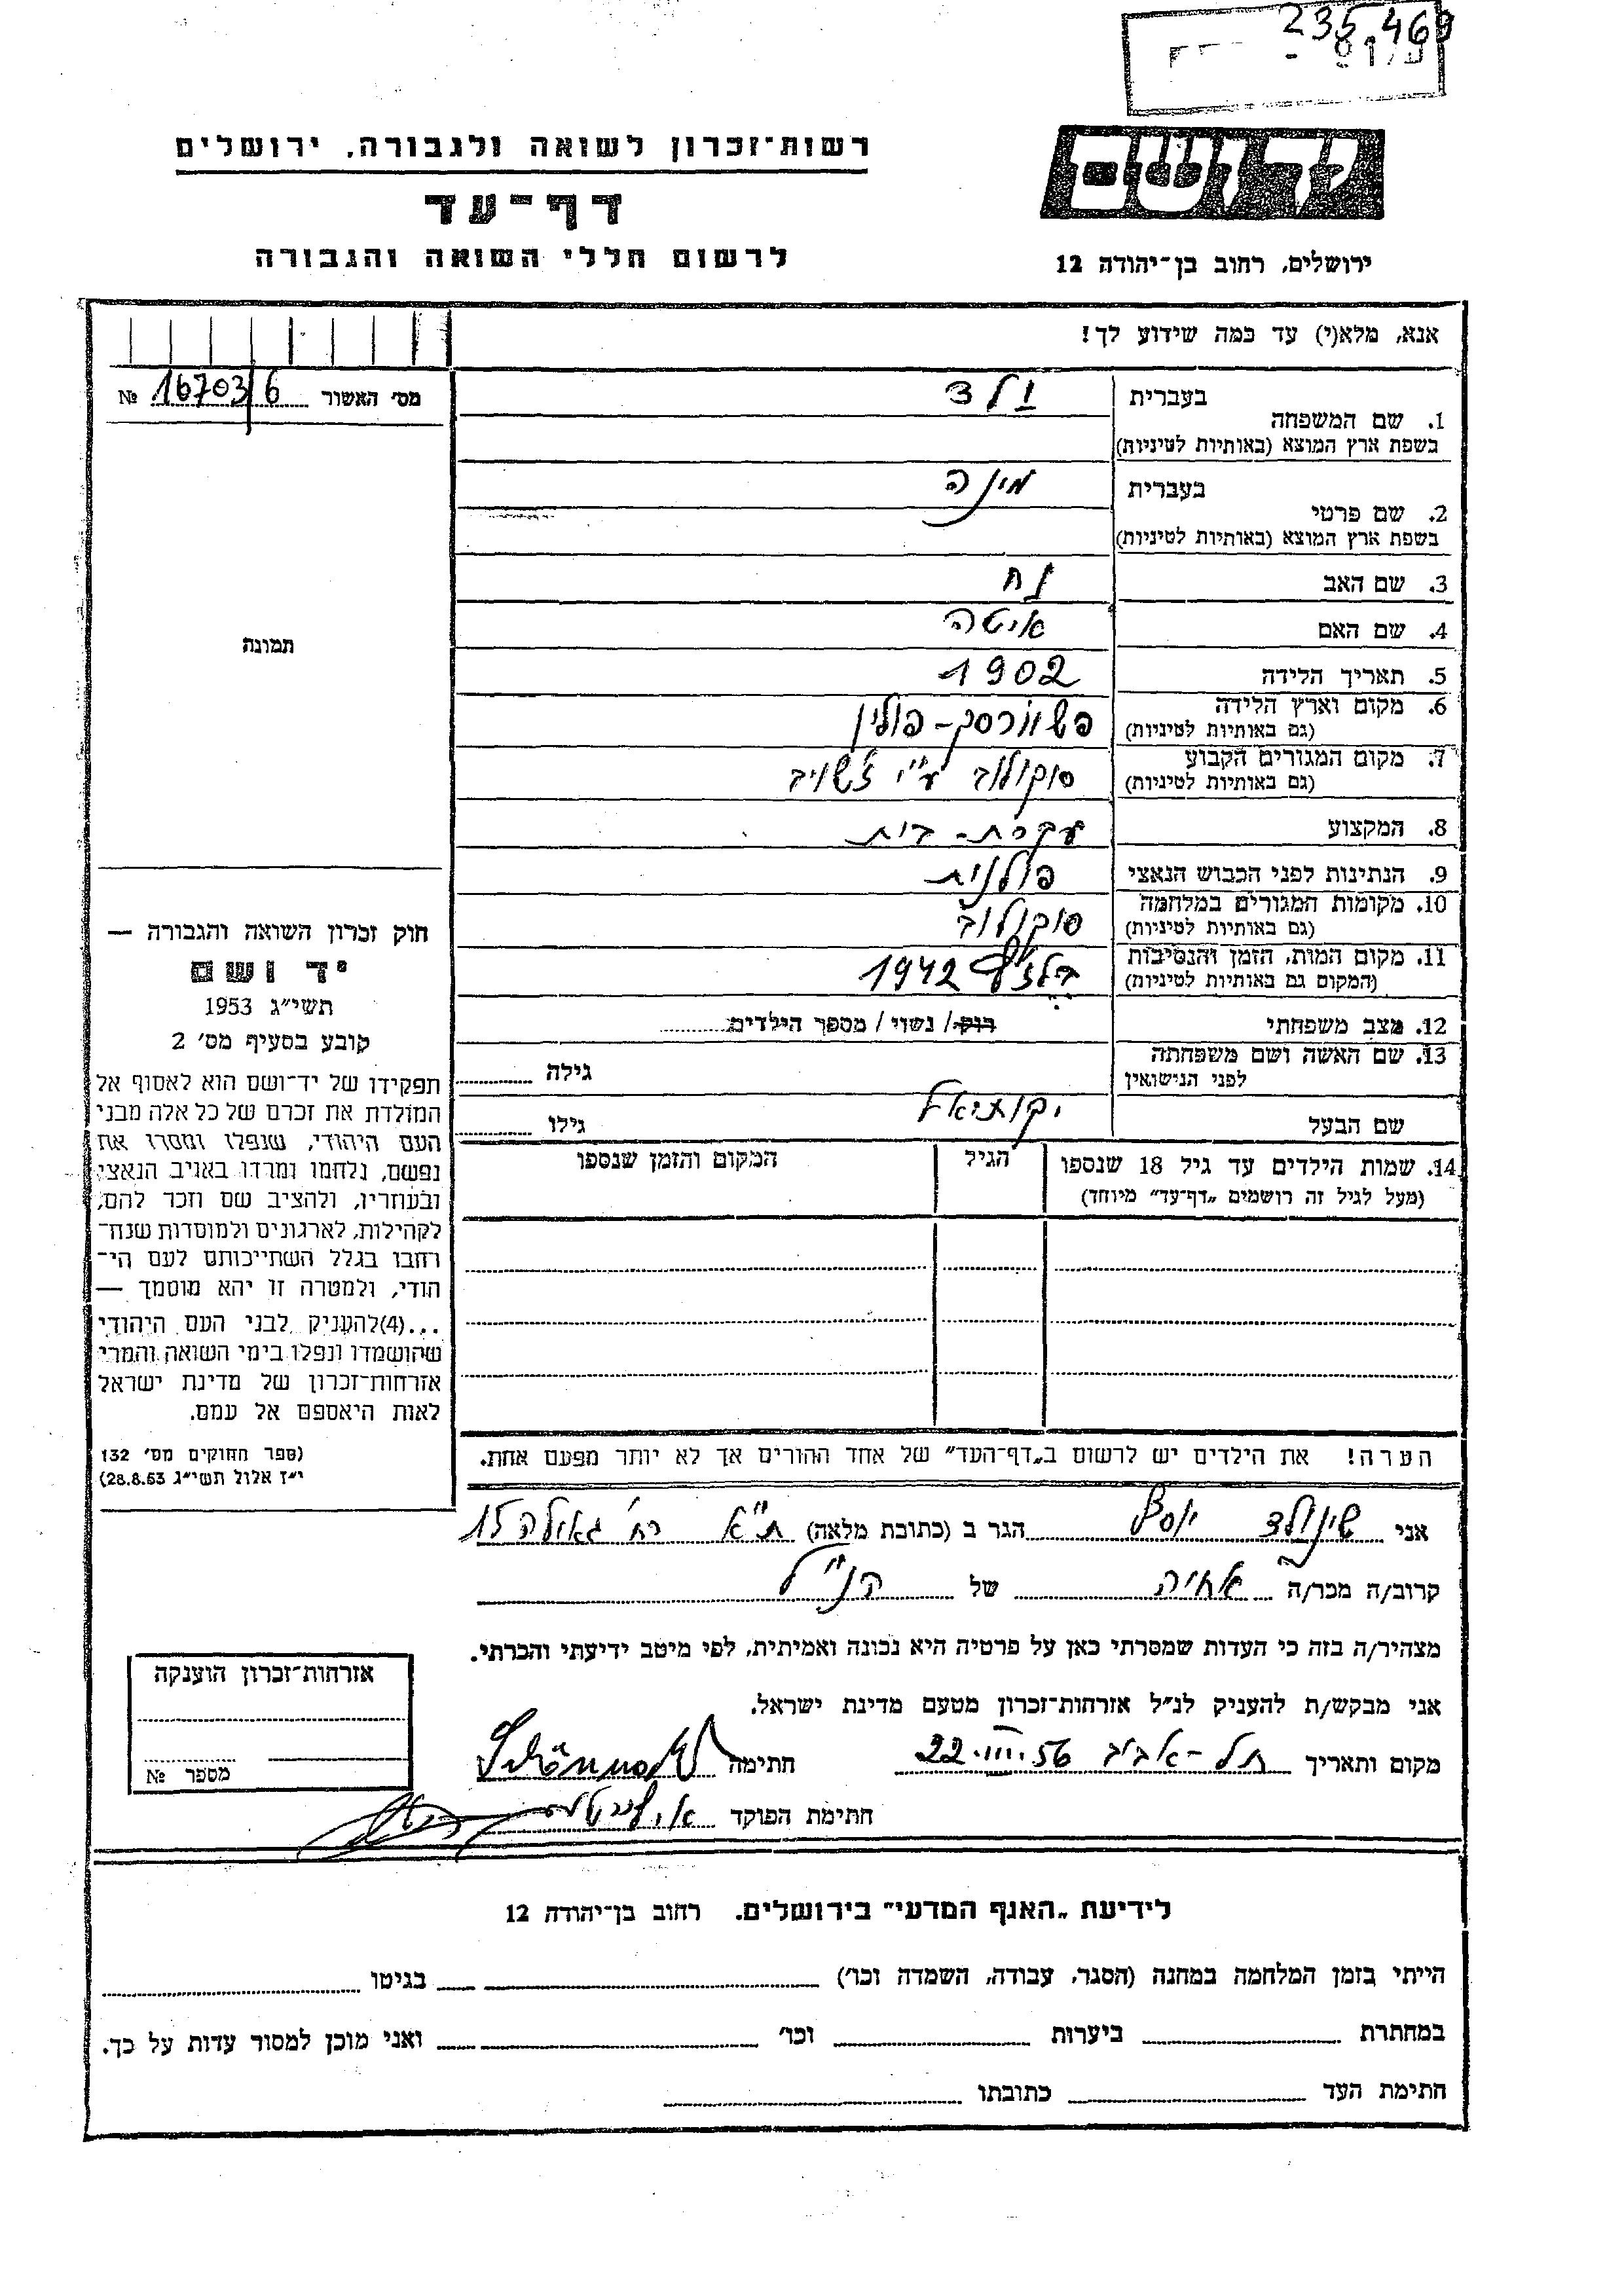 235,469
יד ושם
רשות־זכרון לשואה ולגבורה, ירושלים
דף־עד
לרשום חללי השואה והגבורה
ירושלים, רחוב בן־יהודה 12
אנא, מלא(י) עד כמה שידוע לך!
מס׳ האשור 16703/6 №
תמונה
חוק זכרון השואה והגבורה —
יד ושם
תשי״ג 1953
קובע בסעיף מס׳ 2
תפקידו של יד־ושם הוא לאסוף אל
המולדת את זכרם של כל אלה מבני
העם היהודי, שנפלו ומסרו את
נפשם, נלחמו ומרדו באויב הנאצי
ובעוזריו, ולהציב שם וזכר להם,
לקהילות, לארגונים ולמוסדות שנח־
רחבו בגלל השתייכותם לעם הי־
הודי, ולמטרה זו יהא מוסמך —
...(4)להעניק לבני העם היהודי
שהושמדו ונפלו בימי השואה והמרי
אזרחות־זכרון של מדינת ישראל
לאות היאספם אל עמם.
(ספר החוקים מס׳ 132
י״ז אלול תשי״ג 28.8.53)
1. שם המשפחה בעברית ולד
בשפת ארץ המוצא (באותיות לטיניות)
2. שם פרטי בעברית מינה
בשפת ארץ המוצא (באותיות לטיניות)
3. שם האב נח
4. שם האם איטה
5. תאריך הלידה 1902
6. מקום וארץ הלידה פשוורסק - פולין
(גם באותיות לטיניות)
7. מקום המגורים הקבוע סוקולוב ע״י ז׳שויב
(גם באותיות לטיניות)
8. המקצוע עקרת - בית
9. הנתינות לפני הכבוש הנאצי פולנית
10. מקומות המגורים במלחמה סוקולוב
(גם באותיות לטיניות)
11. מקום המות, הזמן והנסיבות 1942
(המקום גם באותיות לטיניות)
12. מצב משפחתי רוק/ נשוי / מספר הילדים
13. שם האשה ושם משפחתה גילה
לפני הנישואין
שם הבעל יקותיאל גילו
14. שמות הילדים עד גיל 18 שנספו הגיל המקום והזמן שנספו
(מעל לגיל זה רושמים „דף־עד״ מיוחד)
הערה! את הילדים יש לרשום ב„דף־העד״ של אחד ההורים אך לא יותר מפעם אחת.
אני שינולד יוסף הגר ב (כתובת מלאה) ת״א רח׳ גאולה 15
קרוב/ה מכר/ה אחיה של הנ״ל
מצהיר/ה בזה כי העדות שמסרתי כאן על פרטיה היא נכונה ואמיתית, לפי מיטב ידיעתי והכרתי.
אני מבקש/ת להעניק לנ״ל אזרחות־זכרון מטעם מדינת ישראל.
מקום ותאריך תל - אביב 22.III.56 חתימה
חתימת הפוקד
אזרחות־זכרון הוענקה
מספר №
לידיעת „האגף המדעי״ בירושלים. רחוב בן־יהודה 12
הייתי בזמן המלחמה במחנה (הסגר, עבודה, השמדה וכו׳) בגיטו
במחתרת ביערות וכו׳ ואני מוכן למסור עדות על כך.
חתימת העד כתובתו